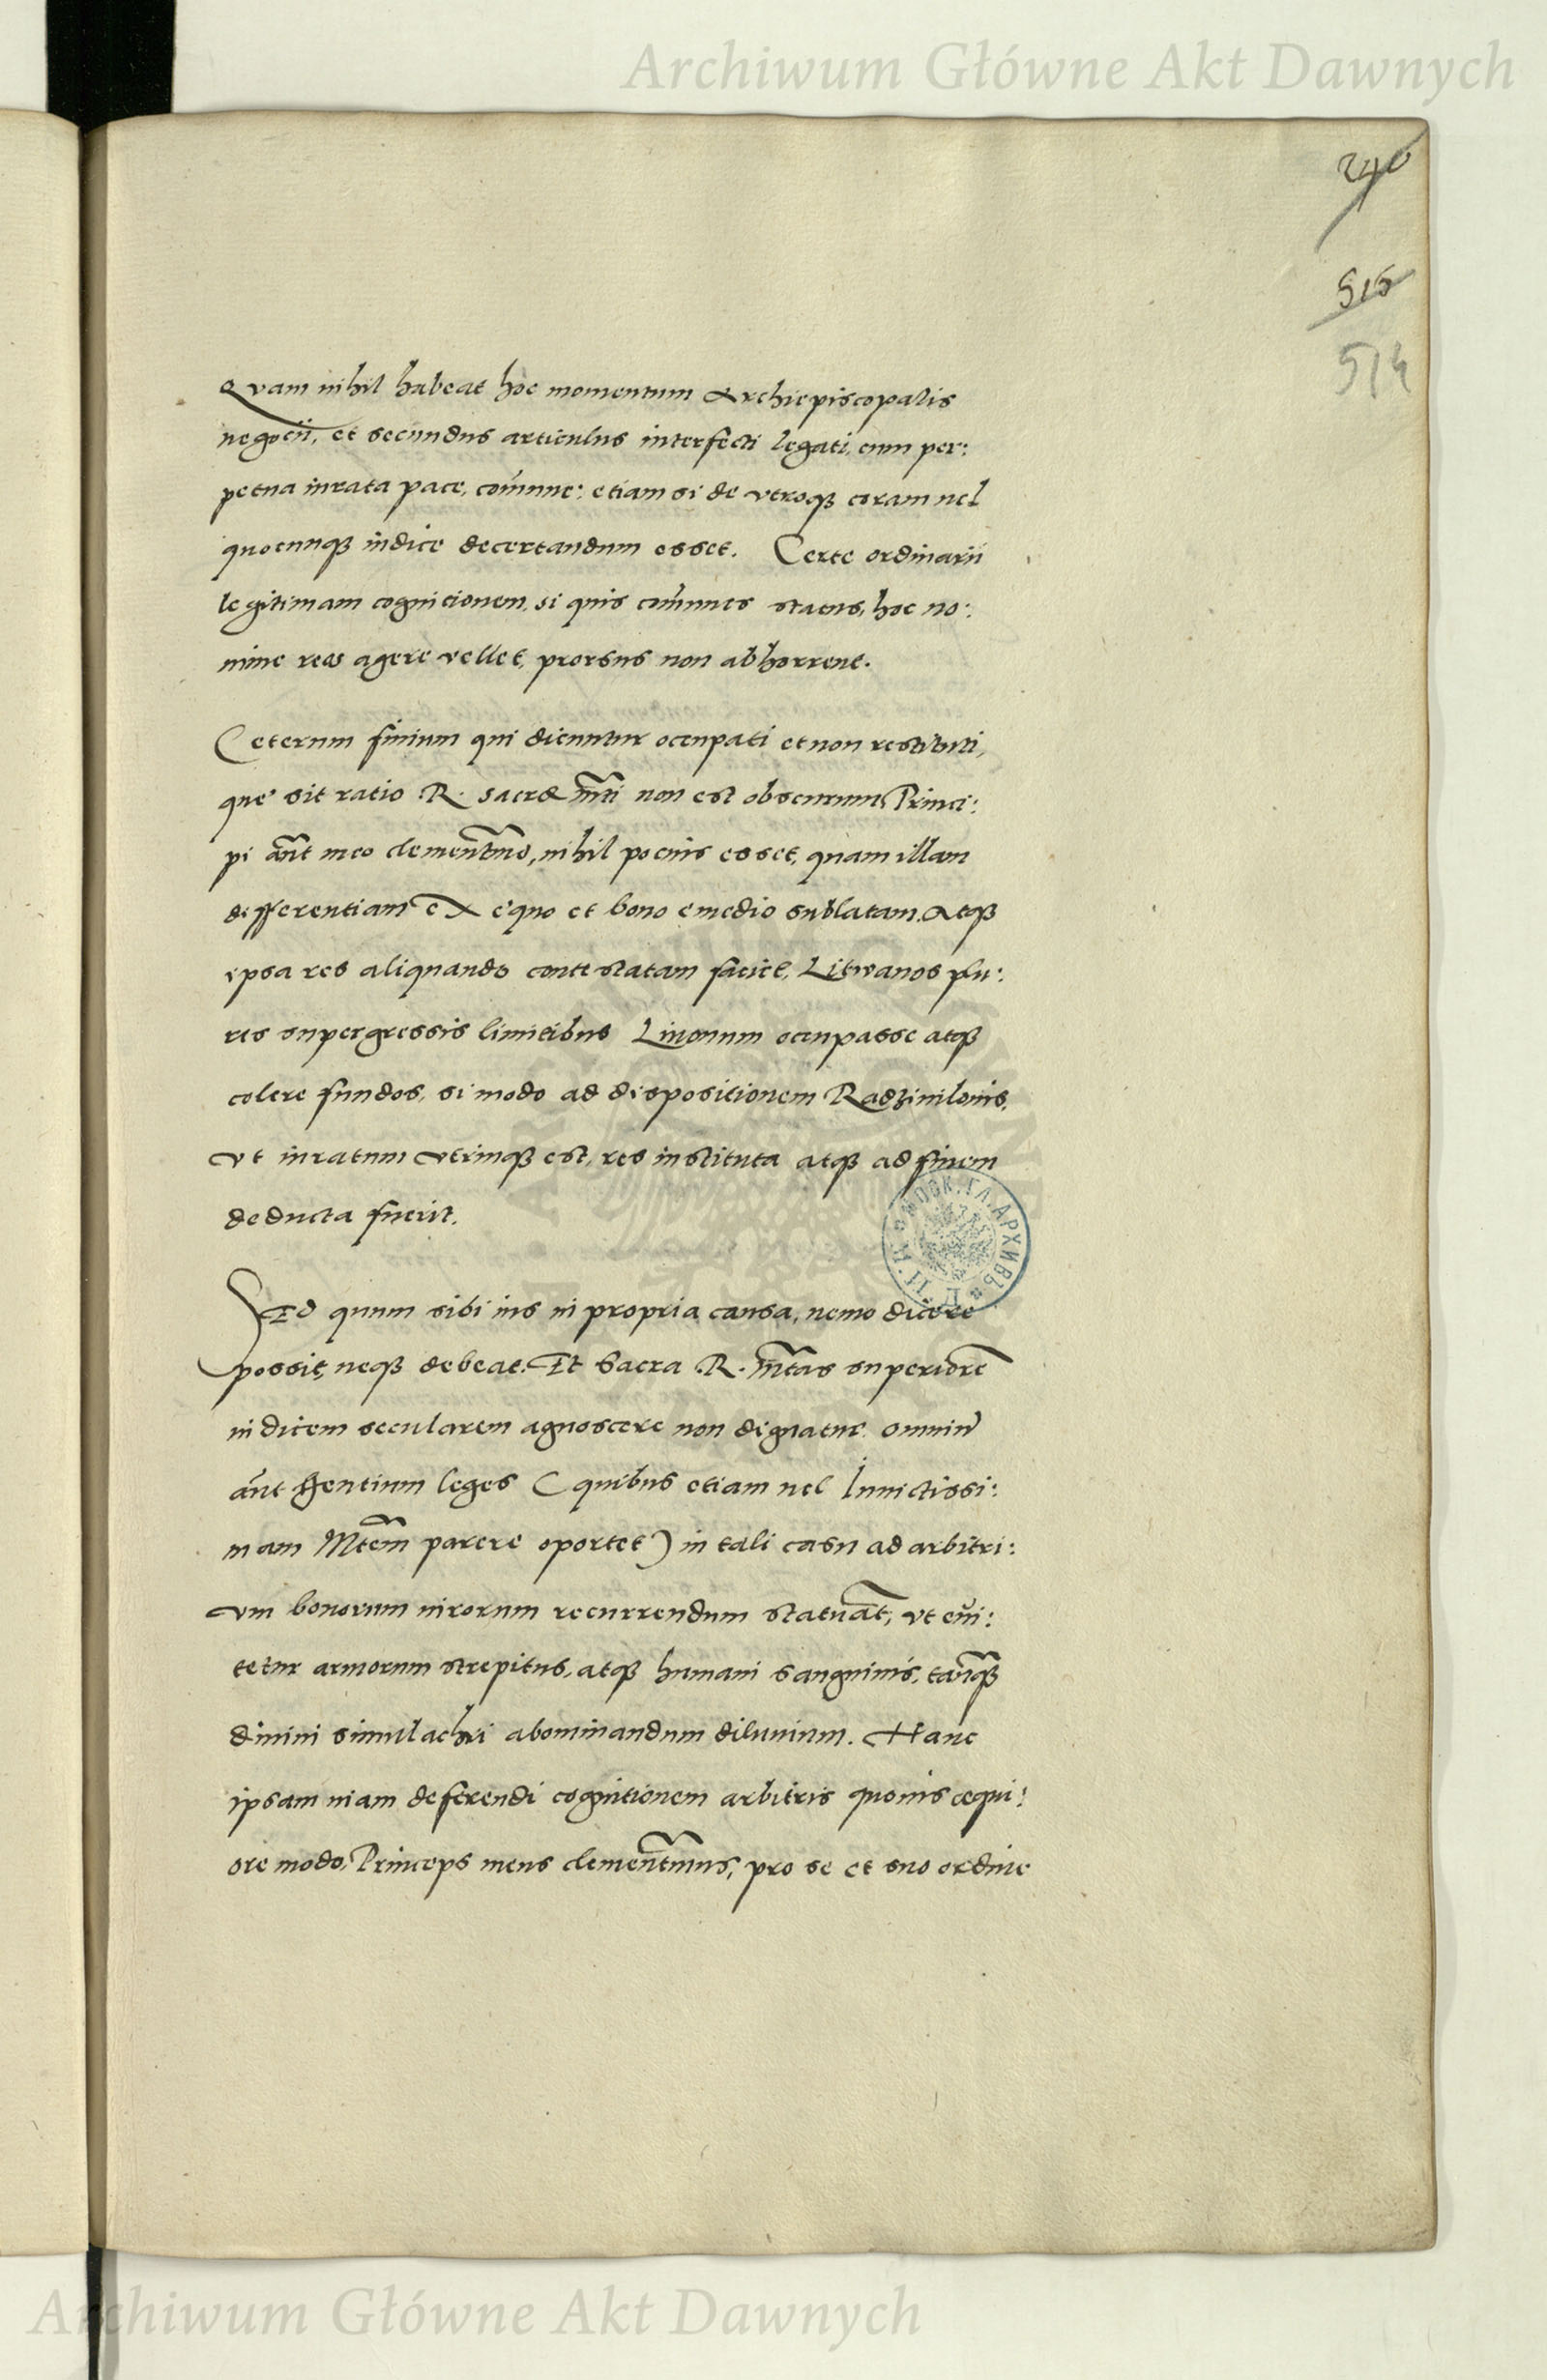 Archiwum Główne Akt Dawnych
240
515
514
Quam nihil habeat hoc momentum Archiepiscopalis
negocii, et secundus articulus interfecti legati, cum per:
petua iurata pace, com̄une: etiam si de vtroqȝ coram uel
quocunqȝ iudice decertandum esset. Certe ordinarii
legitimam cognicionem, si quis com̄unes status, hoc no:
mine reos agere vellet, prorsus non abhorrent.
Ceterum finium qui dicuntur occupati et non restituti,
que sit ratio R. sacræ mti non est obscurum, Princi:
pi aūt meo clementmo, nihil pocius esset, quam illam
differentiam ex equo et bono e medio sublatam. Atqȝ
ipsa res aliquando contestatam faciet, Litwanos plu:
res supergressis limitibus Liuonum occupasse atqȝ
colere fundos, si modo ad dispositionem Radziuilonis,
vt iuratum vtrinqȝ est, res instituta atqȝ ad finem
deducta fuerit.
Sed quum sibi ius in propria causa, nemo dicere
possit, neqȝ debeat. Et Sacra R. mtas superiorē
iudicem secularem agnoscere non dignatur omniū
aūt Gentium leges (quibus etiam uel Inuictissi:
mam Mtem parere oportet) in tali casu ad arbitri:
um bonorum uirorum recurrendum statuāt, vt eui:
tetur armorum strepitus, atqȝ humani sanguinis, tanqȝ
diuini simulachri abominandum diluuium. Hanc
ipsam uiam deferendi cognitionem arbitris quouis æqui:
ore modo, Princeps meus clementmus, pro se et suo ordine
МОСК. ГЛ. АРХИВЪ
Archiwum Główne Akt Dawnych